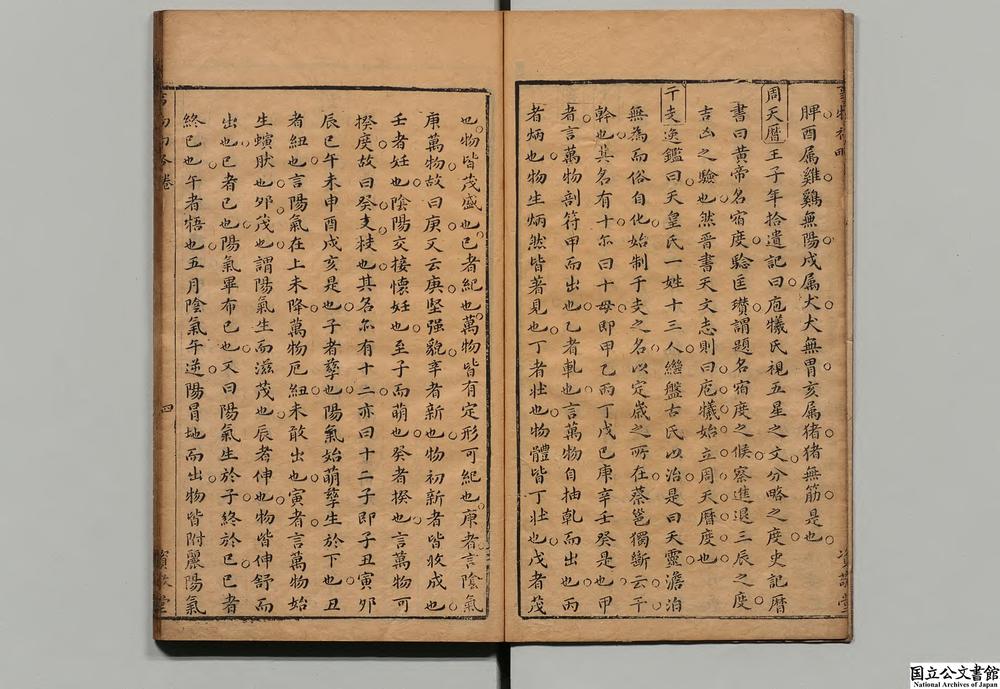 脾酉属雞雞無陽戌属犬犬無胃亥属猪猪無筋是也
周天曆 王子年拾遺記曰庖犧氏視五星之文分略之度史記曆
書曰黄帝名宿度驗匡瓚謂題名宿度之候察進退三辰之度
吉凶之驗也然晋書天文志則曰庖犧始立周天曆度也
干支 逸鑑曰天皇氏一姓十三人繼盤古氏以治是曰天靈澹泊
無為而俗自化始制干支之名以定歳之所在蔡邕獨斷云干
幹也其名有十尓曰十母即甲乙丙丁戊巳庚辛壬癸是也甲
者言萬物剖符甲而出也乙者軋也言萬物自抽軋而出也丙
者炳也物生炳然皆著見也丁者壮也物體皆丁壮也戊者茂
也物皆茂盛也巳者紀也萬物皆有定形可紀也庚者言陰氣
庚萬物故曰庚又云庚堅强貌辛者新也物初新者皆收成也
壬者妊也陰陽交接懷妊也至子而萌也癸者揆也言萬物可
揆度故曰癸支枝也其名尓有十二亦曰十二子即子丑寅夘
辰巳午未申酉戌亥是也子者孳也陽氣始萌孳生於下也丑
者紐也言陽氣在上未降萬物厄紐未敢出也寅者言萬物始
生螾肰也夘茂也謂陽氣生而滋茂也辰者伸也物皆伸舒而
出也巳者已也陽氣畢布已也又曰陽氣生於子終於巳巳者
終已也午者牾也五月陰氣午逆陽冒地而出物皆附麗陽氣
四
資敬堂
国立公文書館
National Archives of Japan